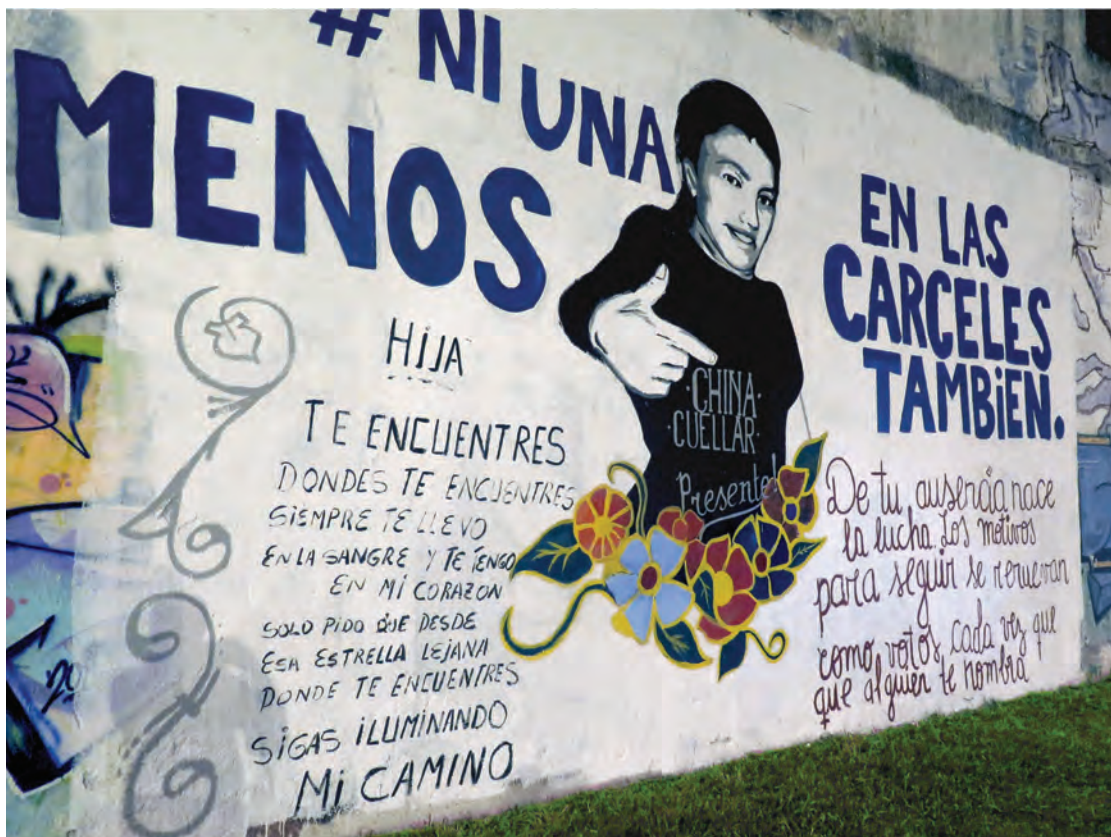 # NI UNA
MENOS
EN LAS
CARCELES
TAMBIEN.
CHINA
CUELLAR
Presente!
HIJA
TE ENCUENTRES
DONDES TE ENCUENTRES
SIEMPRE TE LLEVO
EN LA SANGRE Y TE TENGO
EN MI CORAZON
SOLO PIDO QUE DESDE
ESA ESTRELLA LEJANA
DONDE TE ENCUENTRES
SIGAS ILUMINANDO
MI CAMINO
De tu ausencia nace
la lucha. Los motivos
para seguir se renuevan
como votos, cada vez que
que alguien te nombra